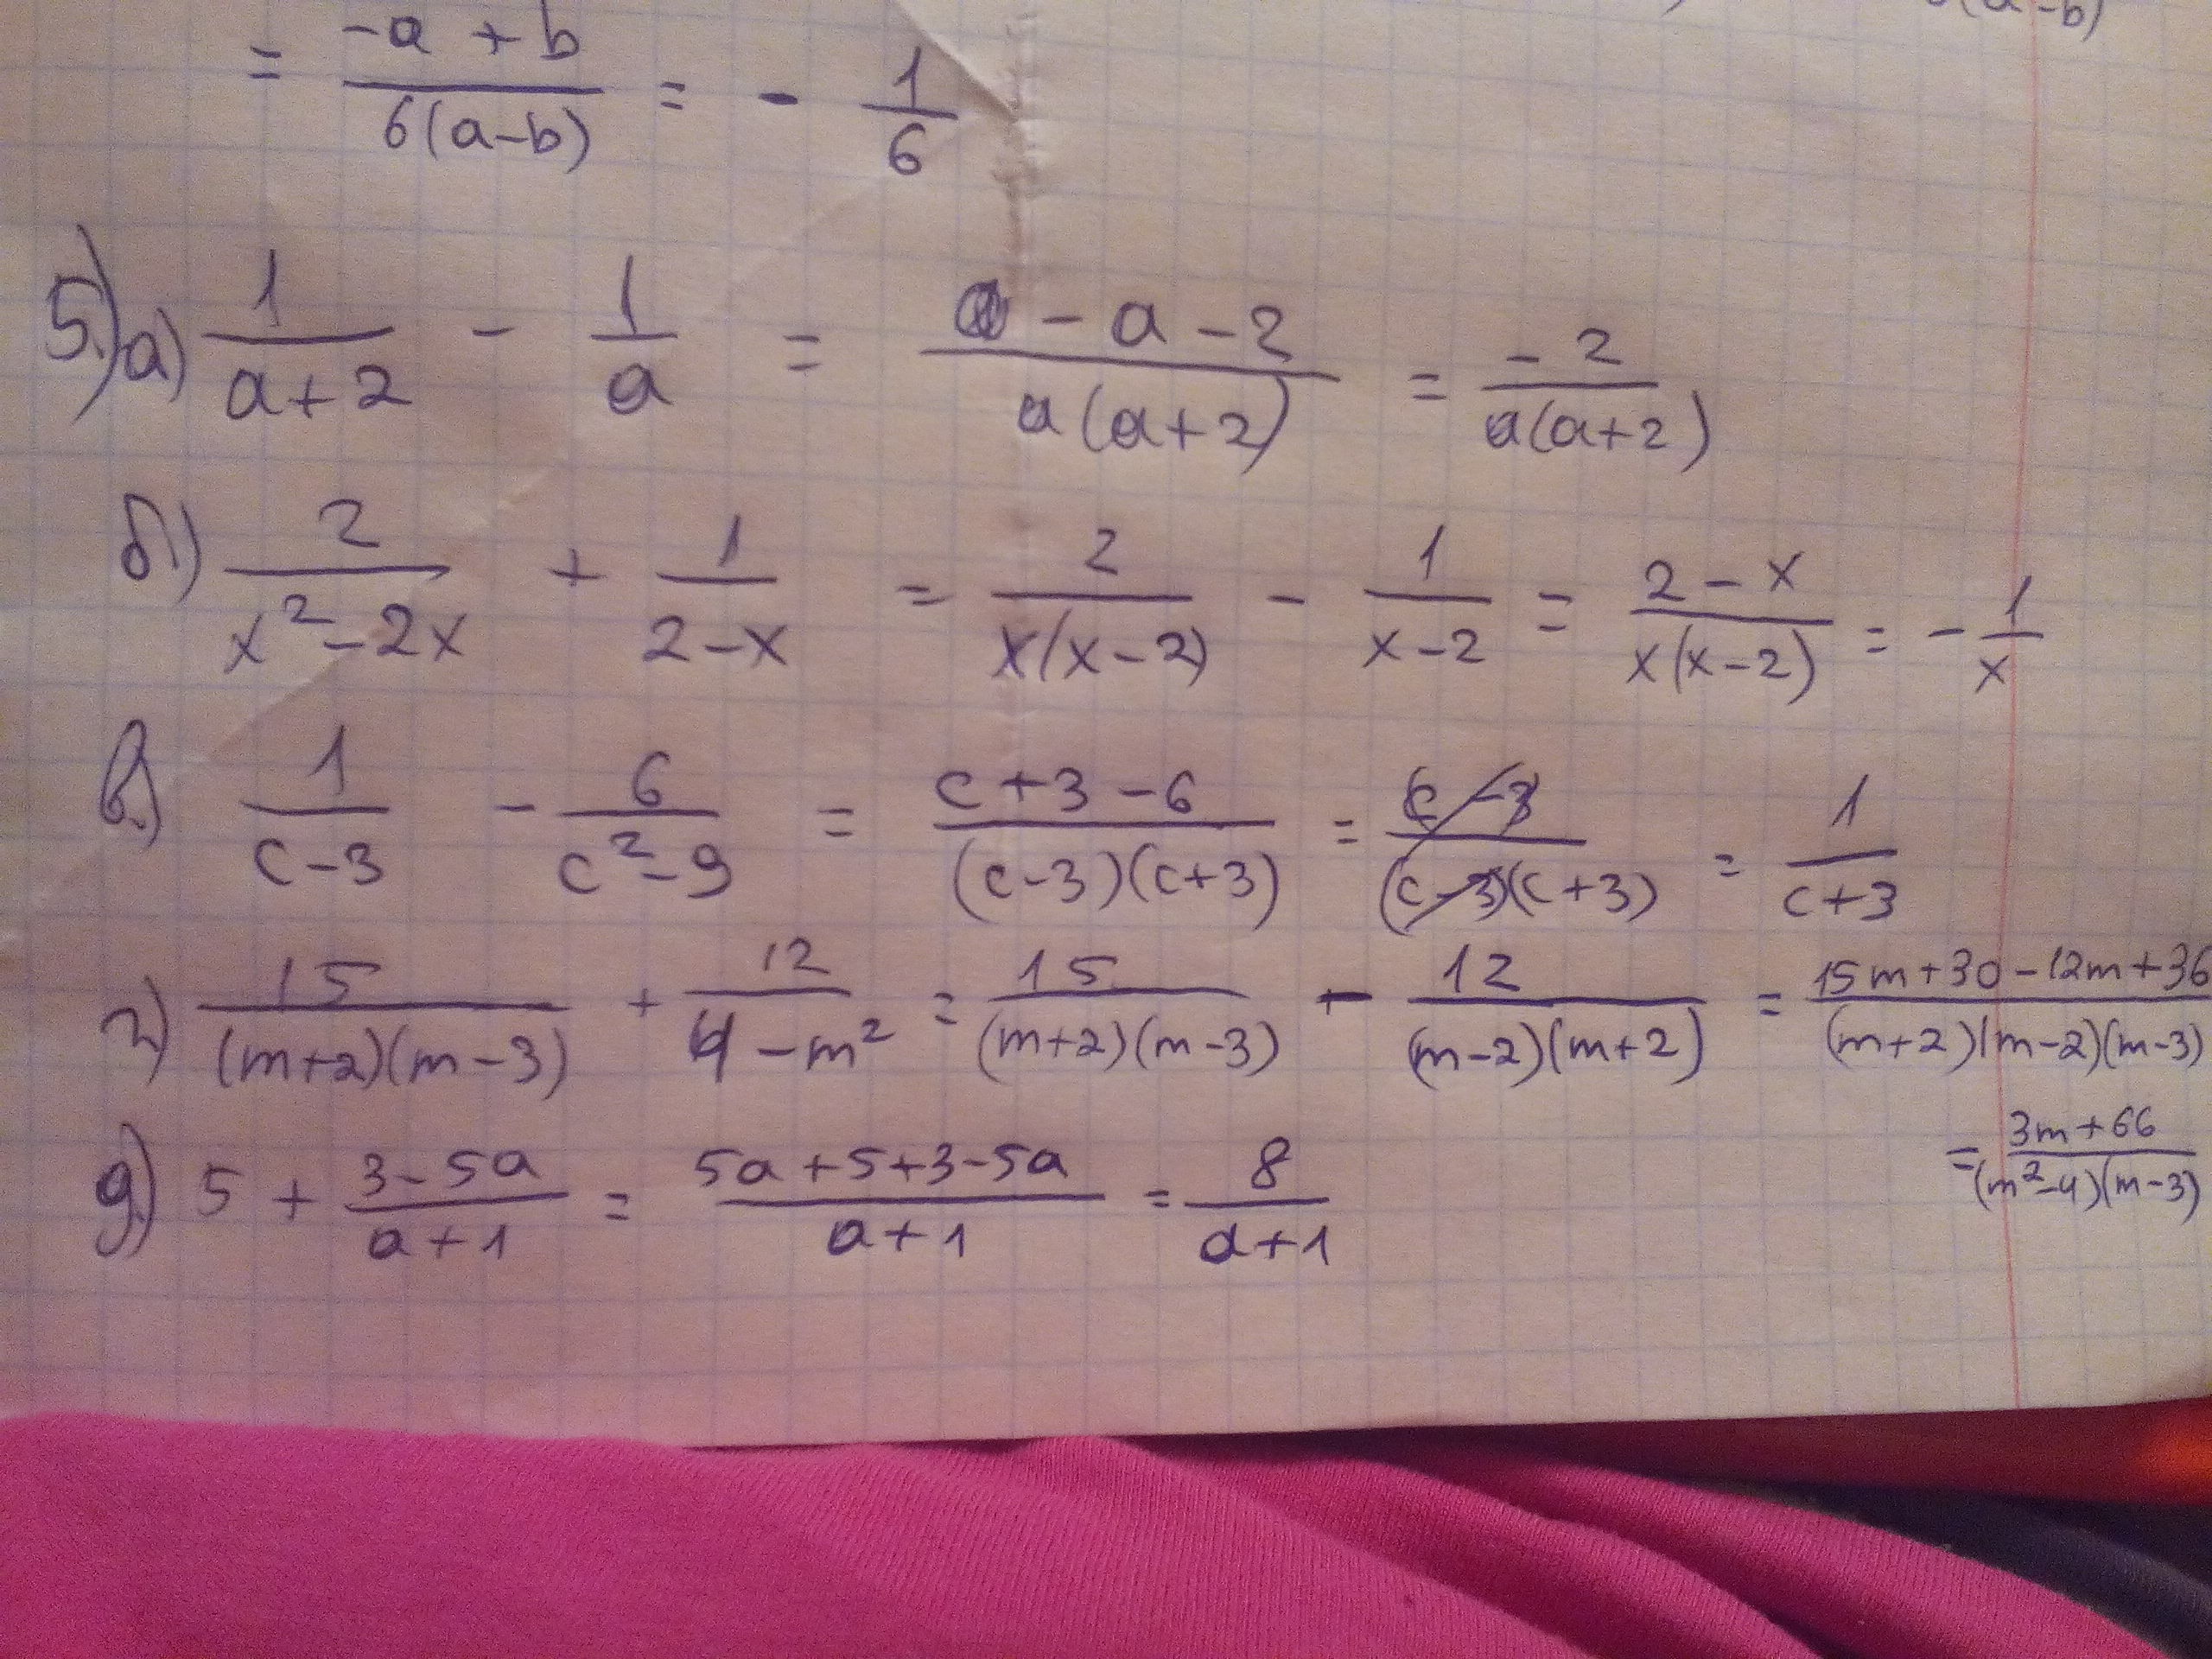 (a-b)
= (-a + b)/(6(a-b)) = - 1/6
5.) а) 1/(a+2) - 1/a = (a - a - 2)/(a(a+2)) = (-2)/(a(a+2))
б) 2/(x² - 2x) + 1/(2-x) = 2/(x(x-2)) - 1/(x-2) = (2-x)/(x(x-2)) = - 1/x
в) 1/(c-3) - 6/(c² - 9) = (c+3-6)/((c-3)(c+3)) = (c-3)/((c-3)(c+3)) = 1/(c+3)
г) 15/((m+2)(m-3)) + 12/(4 - m²) = 15/((m+2)(m-3)) - 12/((m-2)(m+2)) = (15m+30-12m+36)/((m+2)(m-2)(m-3))
= (3m+66)/((m²-4)(m-3))
д) 5 + (3-5a)/(a+1) = (5a+5+3-5a)/(a+1) = 8/(a+1)